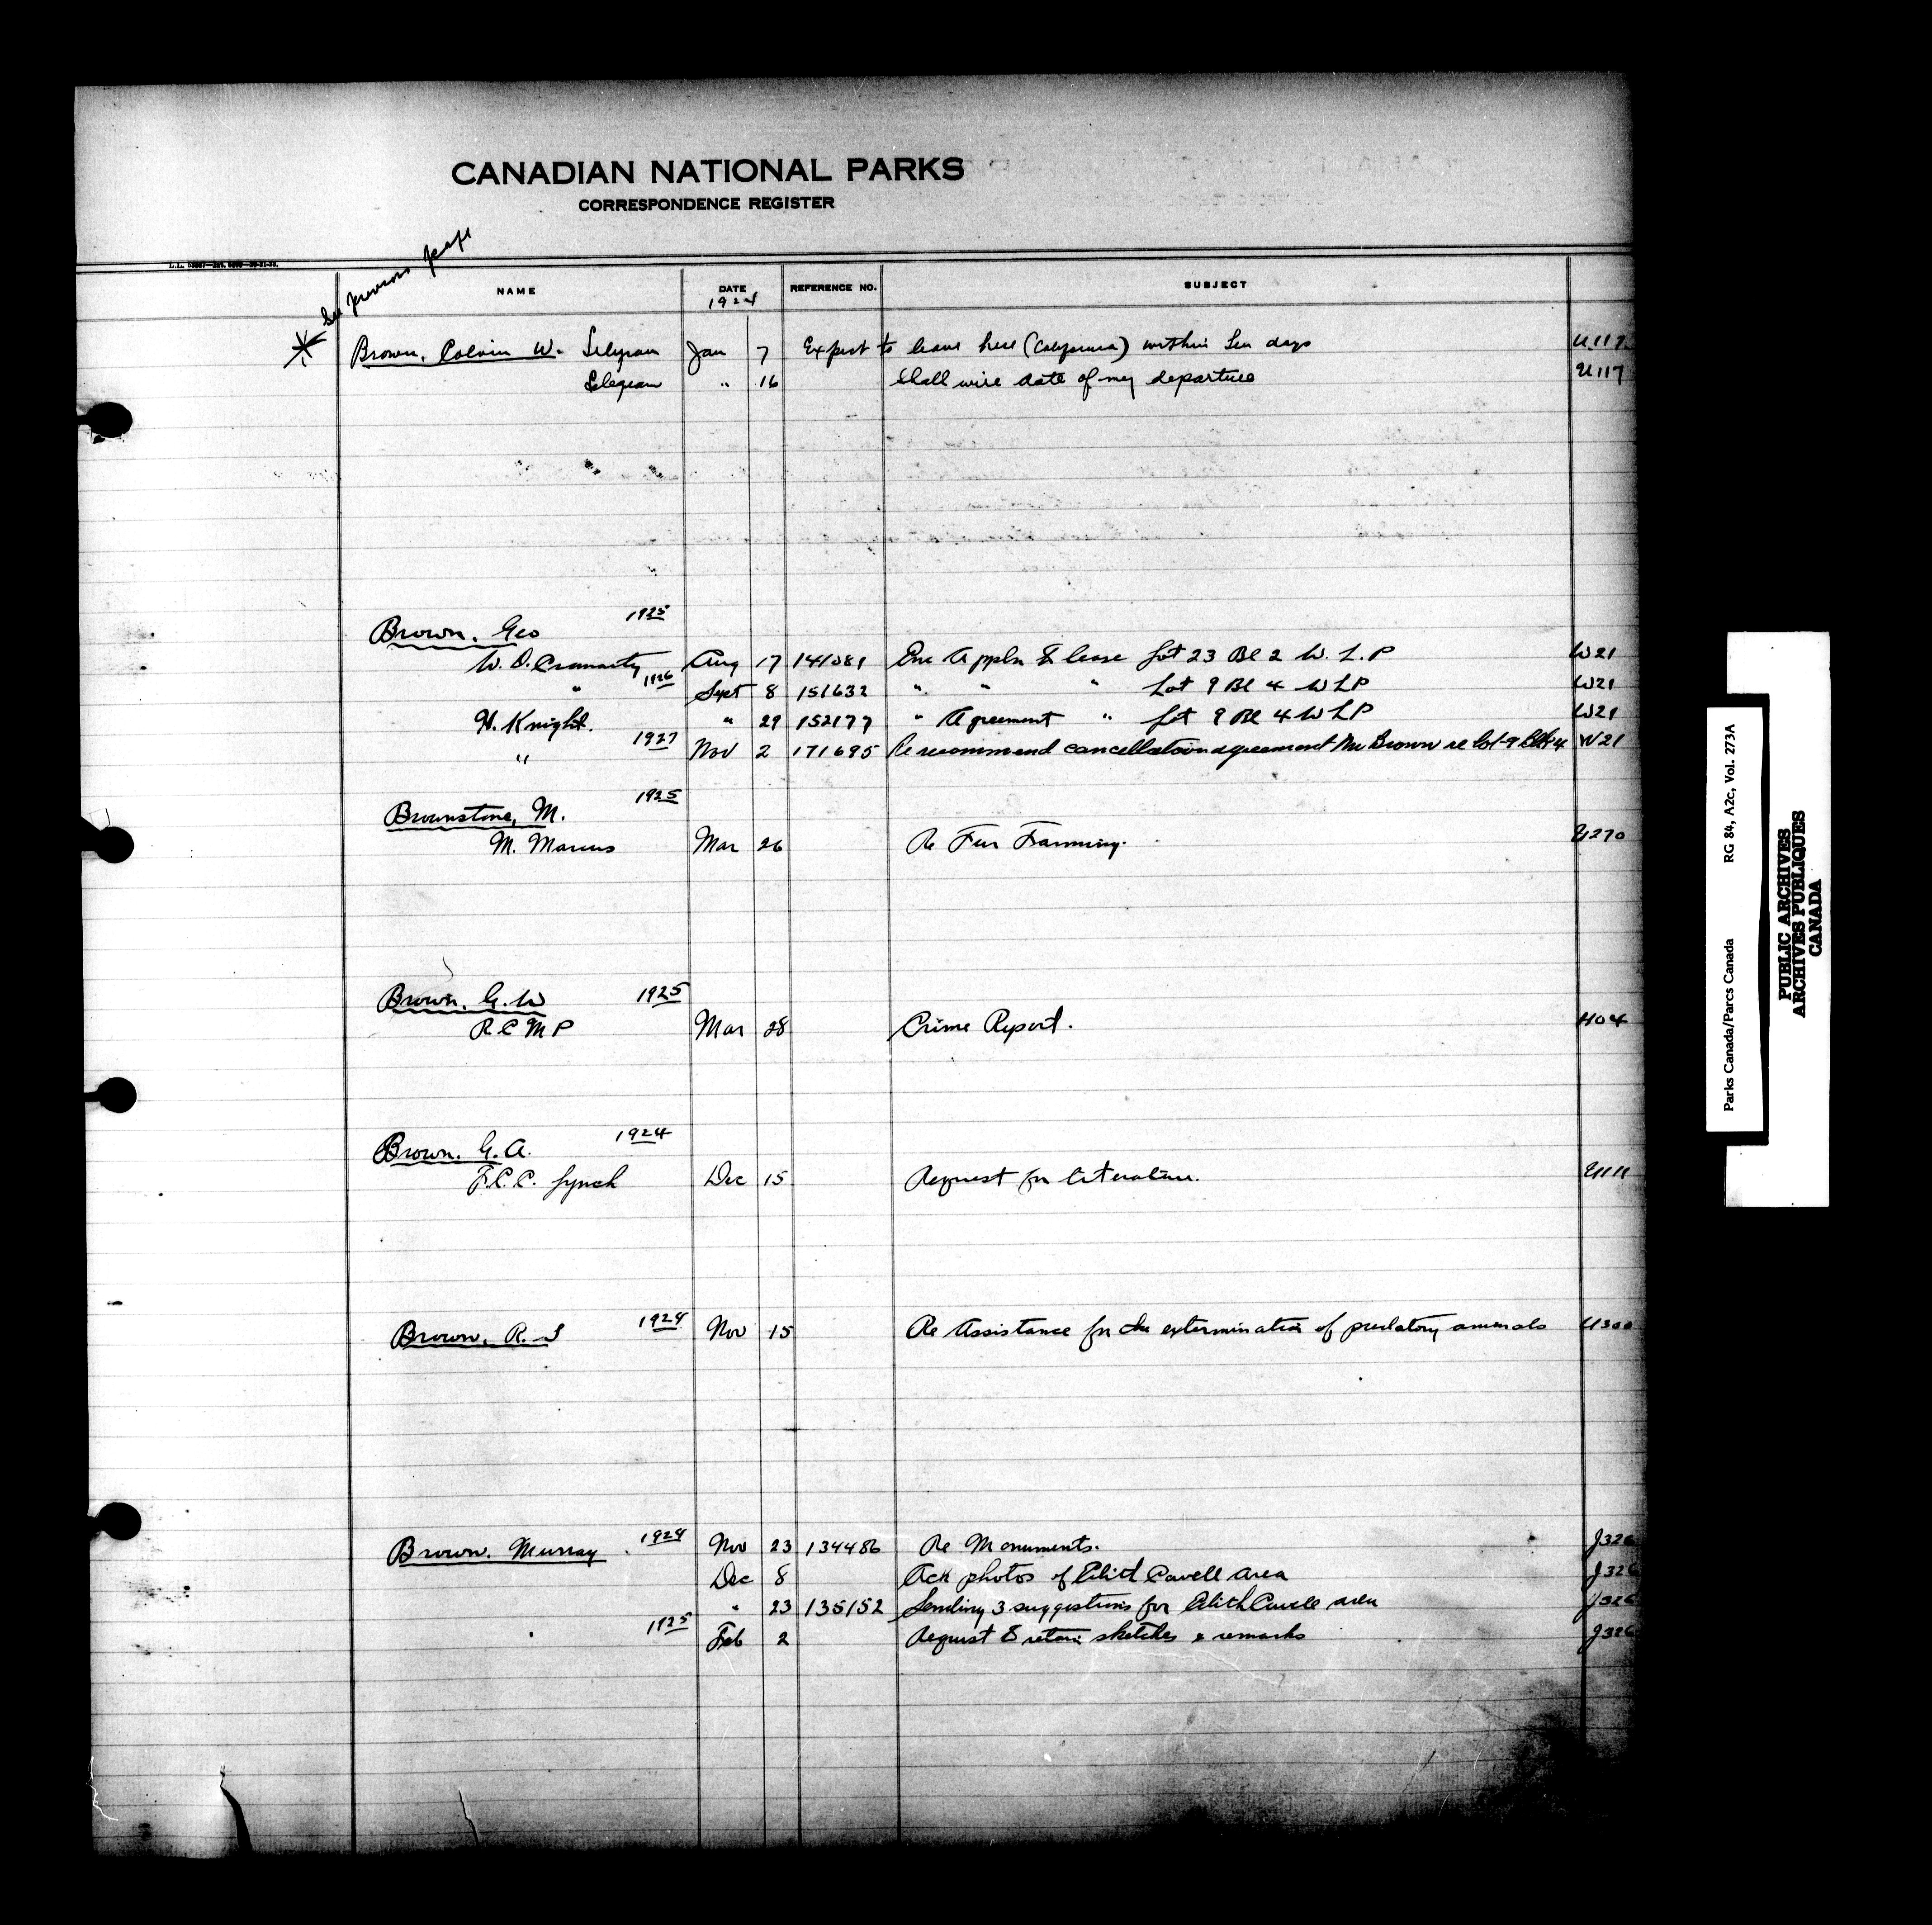 CANADIAN NATIONAL PARKS
CORRESPONDENCE REGISTER
See previous page
NAME DATE REFERENCE NO. SUBJECT
1924
Brown, Colvin W. Telegram Jan 7 Expect to leave here (California) within ten days U.117
Telegram " 16 Shall wire date of my departure U117
Brown, Geo 1925
W. D. Cromarty Aug 17 141081 Enc Appln & lease Lot 23 Bl 2 W. L. P W21
" 1926 Sept 8 151632 " " " Lot 9 Bl 4 W L P W21
H. Knight. " 29 152177 " Agreement " Lot 9 Bl 4 W L P W21
" 1927 Nov 2 171695 Re recommend cancellation agreement Mr Brown re lot 9 Blk 4 W21
Brownstone, M. 1925
M. Marcus Mar 26 Re Fur Farming. U270
Brown, G. W 1925
R C M P Mar 28 Crime Report. H04
Brown, G. A. 1924
F. C. C. Lynch Dec 15 Request for literature. U111
Brown, R. S 1924 Nov 15 Re Assistance for the extermination of predatory animals U300
Brown, Murray 1924 Nov 23 134486 Re Monuments. J326
Dec 8 Ack photos of Edith Cavell area J326
" 23 135152 Sending 3 suggestions for Edith Cavell area J326
1925 Feb 2 Request to return sketches & remarks J326
Parks Canada/Parcs Canada RG 84, A2c, Vol. 273A
PUBLIC ARCHIVES
ARCHIVES PUBLIQUES
CANADA